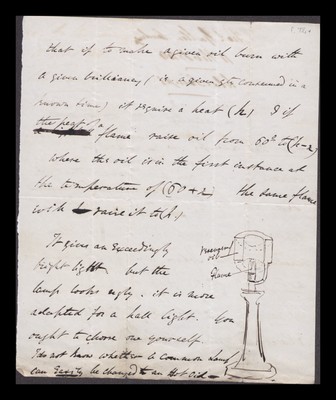 that if to make a given oil burn with
a given brilliancy (ie a given qy to consumed in a
known time) it require a heat (h) & if
the heat of a flame raise oil from 60° to (h-2)
where the oil is in the first instance at
the temperature of (60+2 the same flame
will raise it to (h)
It gives an exceedingly
bright light but the
lamp looks ugly. it is more
adapted for a hall light. You
ought to choose one yourself.
I do not know whether a common lamp
can easily be changed to an Hot Oil
oil
flame